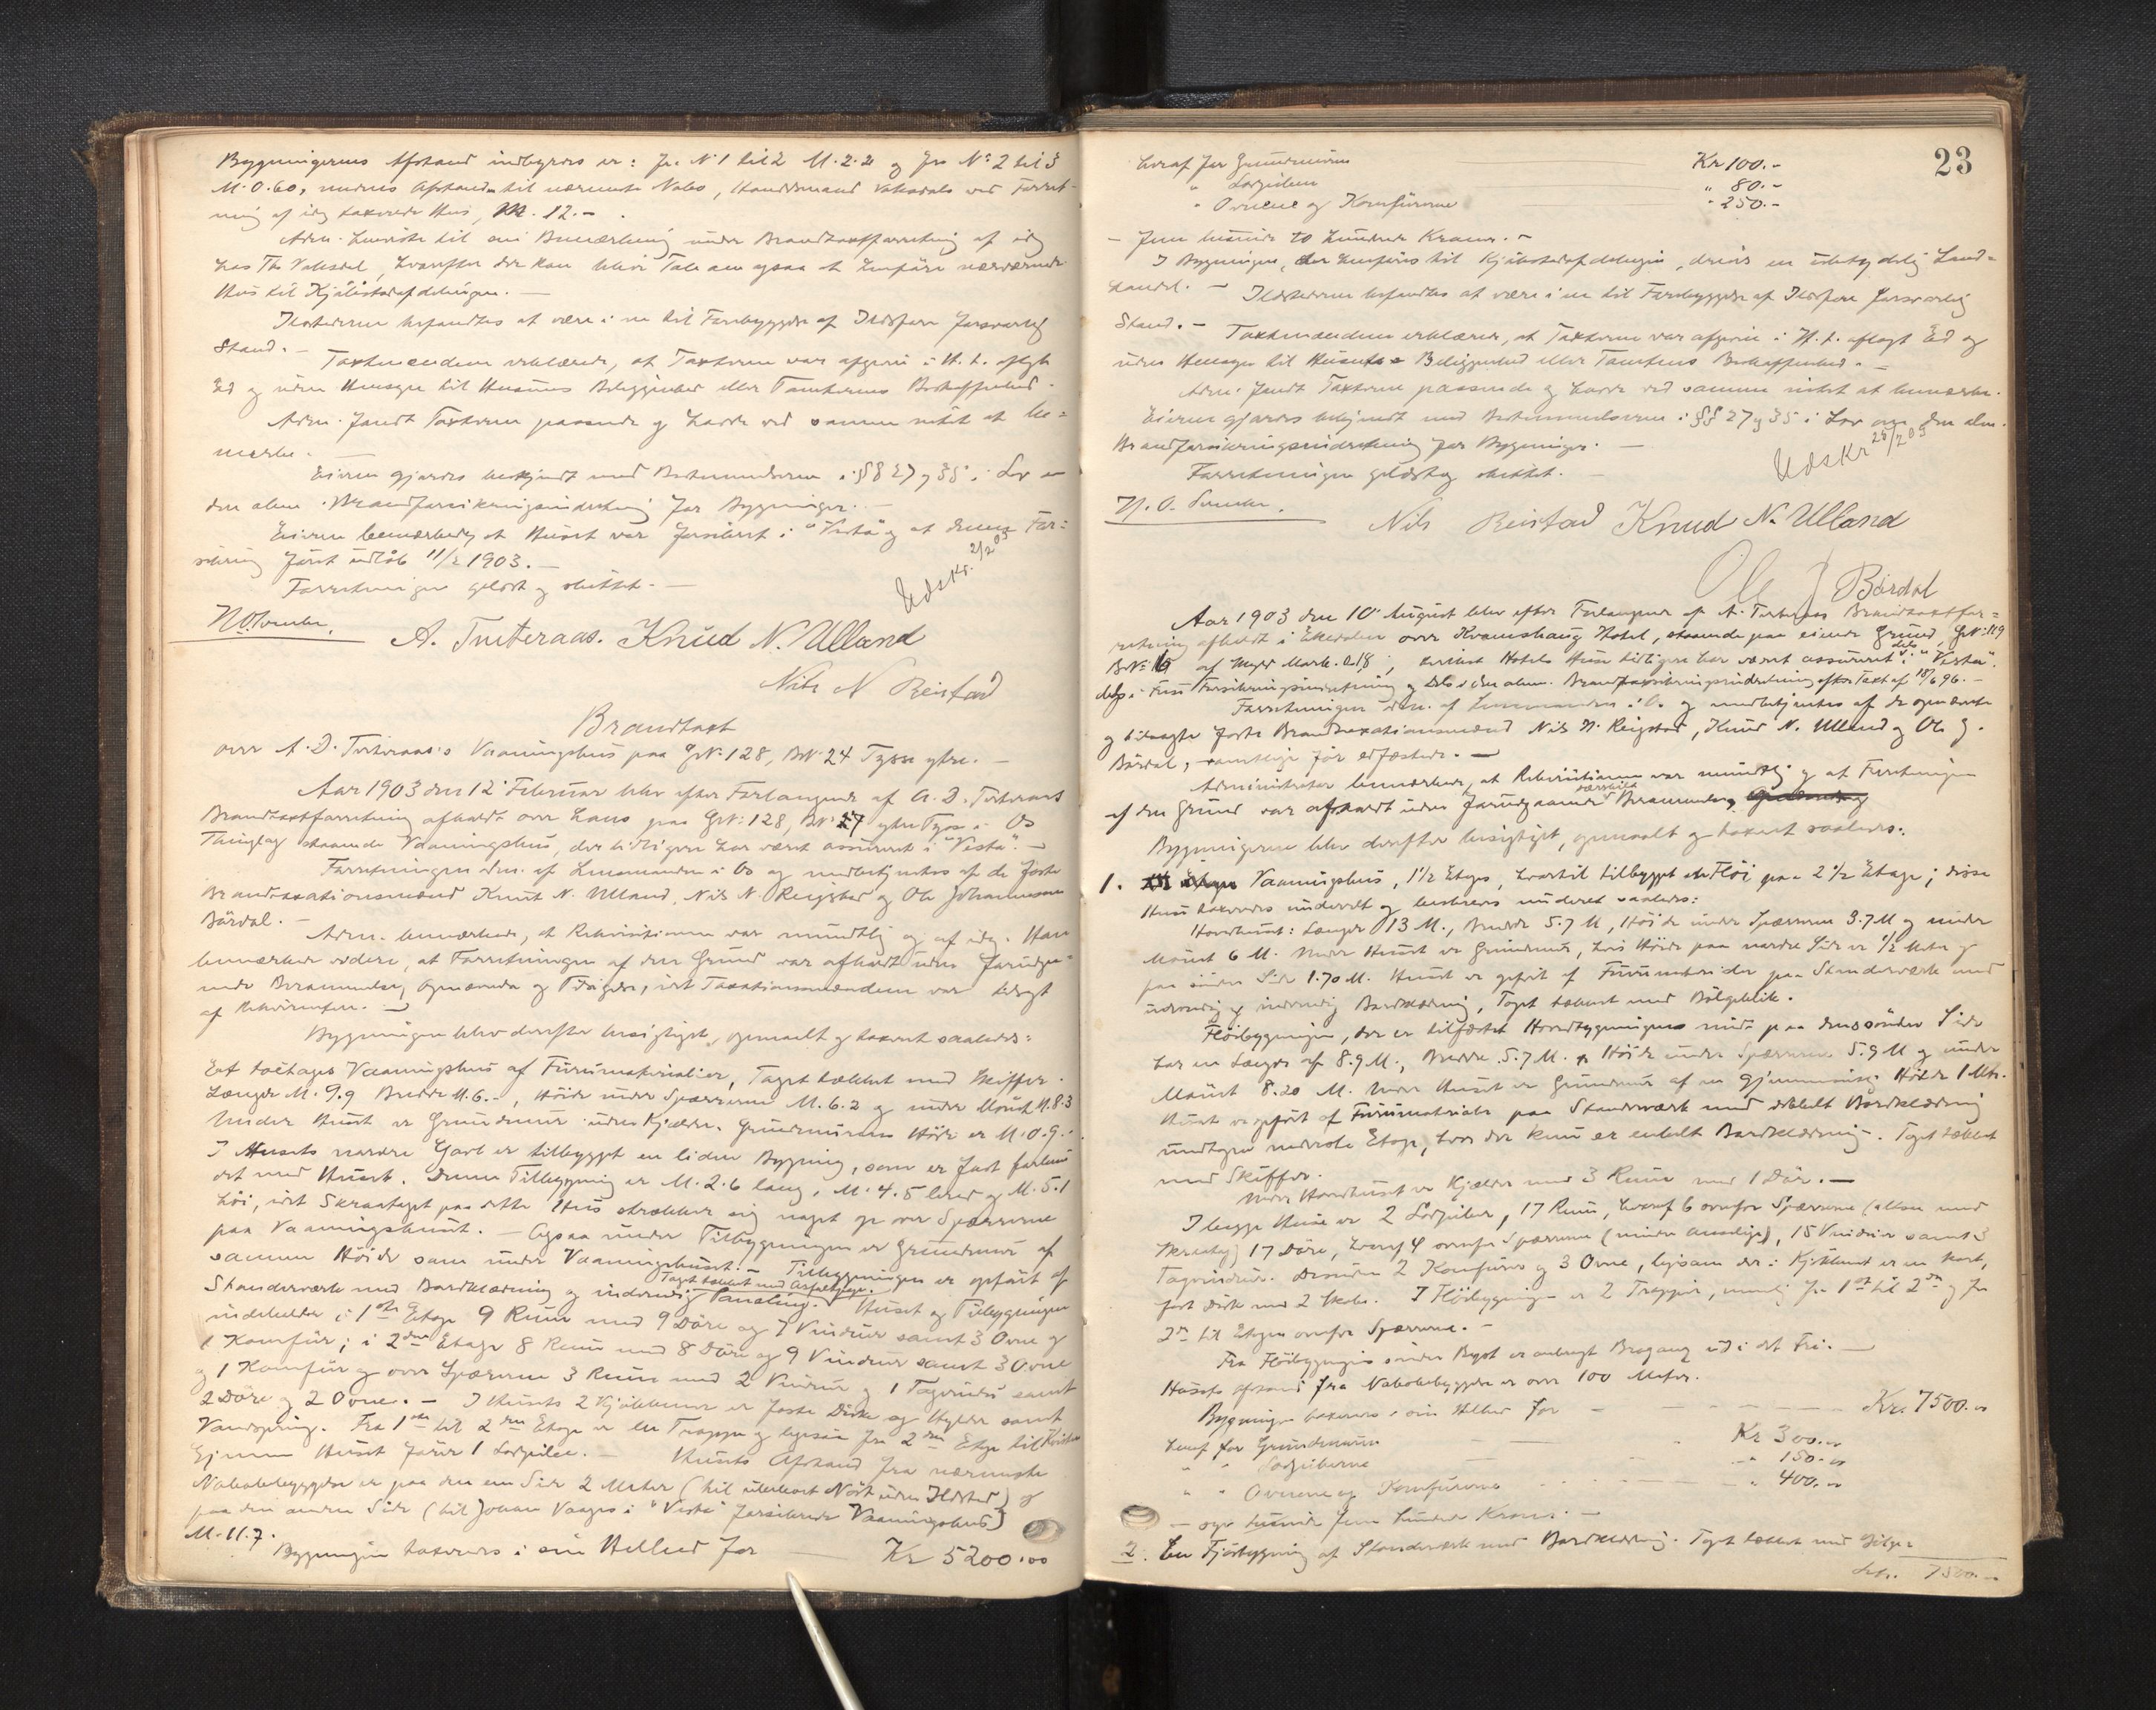 Bygningernes Afstand indbyrdes er: fra No 1 til 2 M. 2.2 og fra No 2 til 3
M. 0.60, medens Afstanden til nærmeste Nabo, Vaksdals ved Forret-
ning af idag taxerede Hus, M. 12.-
Adm. henviste til sin Bemærkning under Brandtaxtforretning af idag
hos Th. Vaksdal, hvorefter der kan blive Tale om ogsaa at henføre nærværende
Hus til Kjøbstadafdelingen. —
Ildstederne befandtes at være i en til Forebyggelse af Ildsfare forsvarlig
Stand. —
Taxtmændene erklærede, at Taxterne var afgivne i H. t. aflagt
Ed og uden Hensyn til Husenes Beliggenhed eller Tomternes Beskaffenhed.
Adm. fandt Taxterne passende og havde ved samme intet at be-
mærke. —
Eieren gjordes bekjendt med Bestemmelserne i §§ 27 og 35 i Lov om
den alm. Brandforsikringsindretning for Bygninger. —
Eieren bemærkede, at Huset var forsikret i "Vesta" og at denne For-
sikring først udløb 11/2 1903. —
Forretningen oplæst og sluttet. —
Udskr. 2/2 03
A. Tveteraas. Knud N. Ulland
Nils N Reistad
Brandtaxt
over A. D. Tveteraas's Vaaningshus paa GN. 128, BN. 24 Tysse ytre. —
Aar 1903 den 12 Februar blev efter Forlangende af A. D. Tveteraas
Brandtaxtforretning afholdt over hans paa GN. 128, BN. 27 ytre Tysse i Os
Thinglag staaende Vaaningshus, der tidligere har været assureret i "Vesta". —
Forretningen adm. af Lensmanden i Os og medbetjentes af de faste
Brandtaxationsmænd Knut N. Ulland, Nils N. Reigstad og Ole Johannessen
Bårdal. —
Adm. bemærkede, at Rekvisitionen var mundtlig og af idag. Han
bemærkede videre, at Forretningen af den Grund var afholdt uden forudgaa-
ende Berammelse, Opnævnelse og Tilsigelse, idet Taxationsmændene var tilsagt
af Rekvirenten. —
Bygningen blev derefter besigtiget, opmaalt og taxeret saaledes:
Et toetages Vaaningshus af Furumaterialier, Taget tækket med Skiffer.
Længde M. 9.9 Bredde M. 6.-, Høide under Spærrerne M. 6.2 og under Mønet M. 8.3
Under Huset er Grundmur uden Kjælder. Grundmurens Høide er M. 0.9. -
I Husets nordre Gavl er tilbygget en liden Bygning, som er fast forbun-
det med Huset. Denne Tilbygning er M. 2.6 lang, M. 4.5 bred og M. 5.1
høi, idet Skraataget paa dette Hus strækker sig noget op over Spærrerne
paa Vaaningshuset. — Ogsaa under Tilbygningen er Grundmur af
samme Høide som under Vaaningshuset. — Tilbygningen er opført af
Standerværk med Bordklædning og indvendig Paneling. Taget tækket med Asfaltpap. Huset og Tilbygningen
indeholder i 1ste Etage 9 Rum med 9 Døre og 7 Vinduer samt 3 Ovne og
1 Komfur; i 2den Etage 8 Rum med 8 Døre og 9 Vinduer samt 3 Ovne
og 1 Komfur og over Spærrerne 3 Rum med 2 Vinduer og 1 Tagvindu samt
2 Døre og 2 Ovne. — I Husets 2 Kjøkkener er faste Diske og Hylder samt
Vandspring. Fra 1ste til 2den Etage er en Trappe og ligesaa fra 2den Etage til Kvisten
Gjennem Huset fører 1 Lodpibe. — Husets Afstand fra nærmeste
Nabobebyggelse er paa den ene Side 2 Meter (til ubeboet Nøst uden Ildsted) og
paa den anden Side (til Johan Vaages i "Vesta" forsikrede Vaaningshus)
M. 11.7.
Bygningen taxeres i sin Helhed for — Kr 5200.00
23
hvoraf for Grundmuren Kr 100.-
" Lodpiben " 80.-
" Ovnene og Komfurerne " 250.-
- fem tusinde to hundrede Kroner. -
I Bygningen, der henføres til Kjøbstadafdelingen, drives en ubetydelig Land-
handel. —
Ildstederne befandtes at være i en til Forebyggelse af Ildsfare forsvarlig
Stand. —
Taxtmændene erklærede, at Taxterne var afgivne i H. t. aflagt Ed og
uden Hensyn til Husets Beliggenhed eller Tomtens Beskaffenhed. —
Adm. fandt Taxterne passende og havde ved samme intet at bemærke.
Eieren gjordes bekjendt med Bestemmelserne i §§ 27 og 35 i Lov om den alm.
Brandforsikringsindretning for Bygninger. —
Udskr 28/2 03
Forretningen oplæst og sluttet. —
Nils Reistad Knud N. Ulland
Ole J Bårdal
Aar 1903 den 10 August blev efter Forlangende af A. Tveteraas Brandtaxtfor-
retning afholdt i over Kramshaug Hotel, staaende paa eiende Grund, GN. 119
BN. 16 af Skyld Mark 0.18, hvilket Hotels Huse tidligere har været assureret dels i "Vesta".
dels i Forsikringsindretning og dels i den alm. Brandforsikringsindretning efter Taxt af 18/6 96. —
Forretningen adm. af Lensmanden i Os og medbetjentes af de opnævnte
og tilsagte faste Brandtaxationsmænd Nils N. Reigstad, Knud N. Ulland og Ole J.
Bårdal, samtlige før edfæstede. —
Administrator bemærkede, at Rekvisitionen var mundtlig og at Forretningen
af den Grund var afholdt uden forudgaaende særskilt Berammelse
Bygningerne blev derefter besigtiget, opmaalt og taxeret saaledes:
1. Vaaningshus, 1 1/2 Etages, hvortil tilbygget en Fløi paa 2 1/2 Etage; disse
Huse taxeredes underet og beskrives underet saaledes:
Hovedhuset: Længde 13 M., Bredde 5.7 M, Høide under Spærrerne 3.7 M og under
Mønet 6 M. Under Huset er Grundmur, hvis Høide paa nordre Side er 1/2 Meter og
paa søndre Side 1.70 M. Huset er opført af Furumaterialer paa Standerværk med
udvendig og indvendig Bordklædning, Taget tækket med Bølgeblik.
Fløibygningen, der er tilføiet Hovedbygningens midte paa den søndre Side
har en Længde af 8.9 M., Bredde 5.7 M. Høide under Spærrerne 5.9 M og under
Mønet 8.20 M. Under Huset er Grundmur af en gjennemsnitlig Høide 1 Mtr.
Huset er opført af Furumaterialer paa Standerværk med dobbelt Bordklædning
undtagen nederste Etage, hvor der kun er enkelt Bordklædning. Taget tækket
med Skiffer.
Under Hovedhuset er Kjælder med 3 Rum med 1 Dør. —
I begge Huse er 2 Lodpiber, 17 Rum, hvoraf 6 ovenfor Spærrerne (alle med
Skraatag) 17 Døre, hvoraf 4 ovenfor Spærrerne (mindre anselige), 15 Vinduer samt 3
Tagvinduer. Desuden 2 Komfurer og 3 Ovne, ligesom der i Kjøkkenet er en stor,
fast Disk med 2 Skabe. I Fløibygningen er 2 Trapper, nemlig fra 1ste til 2den og fra
2den til Etagen ovenfor Spærrerne. —
Fra Fløibygningens søndre Røst er anbragt Brogang ud i det Fri. —
Husets Afstand fra Nabobebyggelse er over 100 Meter.
Bygningen taxeres i sin Helhed for — Kr. 7500.00
hvoraf for Grundmuren Kr 300.00
" " Lodpiberne " 150.00
" " Ovnene og Komfurerne " 400.00
- syv tusinde fem hundrede Kroner. -
2. En Fjøsbygning af Standerværk med Bordklædning. Taget tækket med Bølge-
Lat. 7500.-